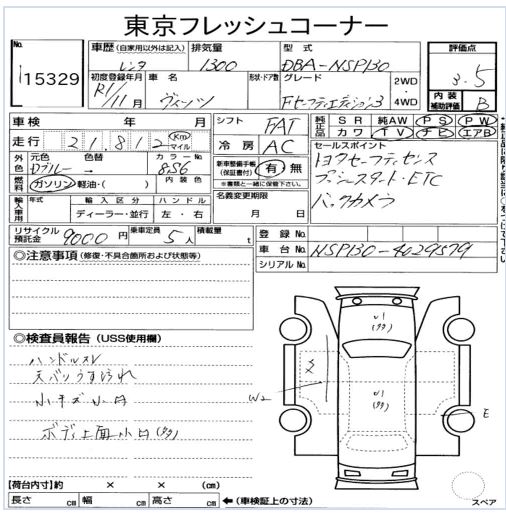 東京フレッシュコーナー
No.
15329
車歴 (自家用以外は記入)
レンタ
排気量
1300
型式
DBA-NSP130
評価点
3.5
初度登録年月
R1/11月
車名
ヴィッツ
形状・ドア数
グレード
Fセーフティエディション3
2WD
・
4WD
内装
補助評価
B
車検 年 月
走行 21,812 Km マイル
シフト
FAT
冷房
AC
純正品 SR 純AW PS PW
純正品 カワ TV ナビ エアB
外色
元色
Dブルー
色替
→
カラーNo.
8S6
燃料
ガソリン 軽油・( )
内装色
新車整備手帳
(保証書付)
有・無
※書類と一緒に保管下さい。
セールスポイント
トヨタセーフティセンス
プッシュスタート・ETC
バックカメラ
輸入車用
年式
輸入区分
ディーラー・並行
ハンドル
左・右
名義変更期限
月 日
リサイクル預託金
9000円
乗車定員
5人
積載量
t
登録No.
車台No.
NSP130-4029579
シリアルNo.
◎注意事項 (修復・不具合箇所および状態等)
◎検査員報告 (USS使用欄)
ハンドルスレ
天バリうす汚れ
小キズ小凹
ボディ上面小凹(タタ)
U1
(タタ)
U1
(タタ)
W2
E
【荷台内寸】約 × × (cm)
長さ cm 幅 cm 高さ cm ←(車検証上の寸法)
スペア